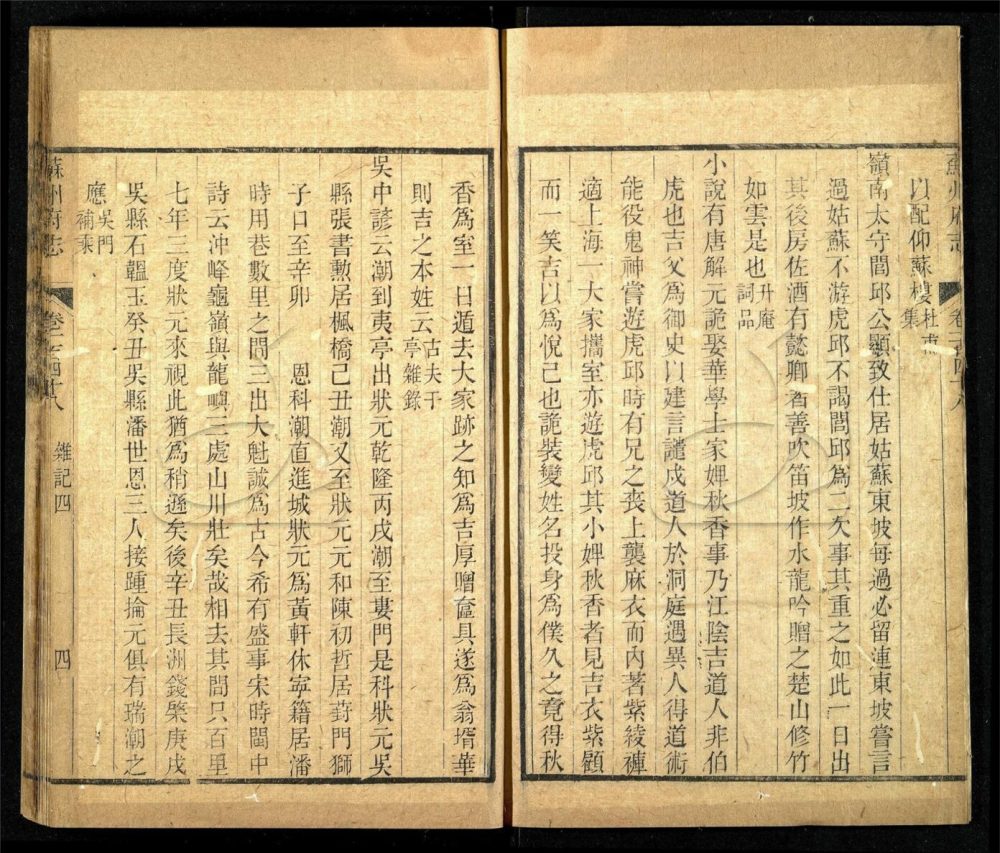 蘇州府志
以配仰蘇樓杜甫集
嶺南太守閭邱公顯致仕居姑蘇東坡每過必留連東坡嘗言
過姑蘇不游虎邱不謁閭邱爲二欠事其重之如此一日出
其後房佐酒有懿卿者善吹笛坡作水龍吟贈之楚山修竹
如雲是也升庵詞品
小說有唐解元詭娶華學士家婢秋香事乃江陰吉道人非伯
虎也吉父爲御史以建言譴戍道人於洞庭遇異人得道術
能役鬼神嘗遊虎邱時有兄之喪上襲麻衣而內著紫綾褲
適上海一大家攜室亦遊虎邱其小婢秋香者見吉衣紫顧
而一笑吉以爲悅己也詭裝變姓名投身爲僕久之竟得秋
香爲室一日遁去大家跡之知爲吉厚贈奩具遂爲翁壻華
則吉之本姓云古夫于亭雜錄
吳中諺云潮到夷亭出狀元乾隆丙戌潮至婁門是科狀元吳
縣張書勲居楓橋己丑潮又至狀元元和陳初哲居葑門獅
子口至辛卯　恩科潮直進城狀元爲黃軒休寧籍居潘
時用巷數里之間三出大魁誠爲古今希有盛事宋時閩中
詩云沖峰龜嶺與龍嶼三處山川壯矣哉相去其間只百里
七年三度狀元來視此猶爲稍遜矣後辛丑長洲錢棨庚戌
吳縣石韞玉癸丑吳縣潘世恩三人接踵掄元俱有瑞潮之
應吳門補乘
蘇州府志　卷一百四十八　雜記四　四